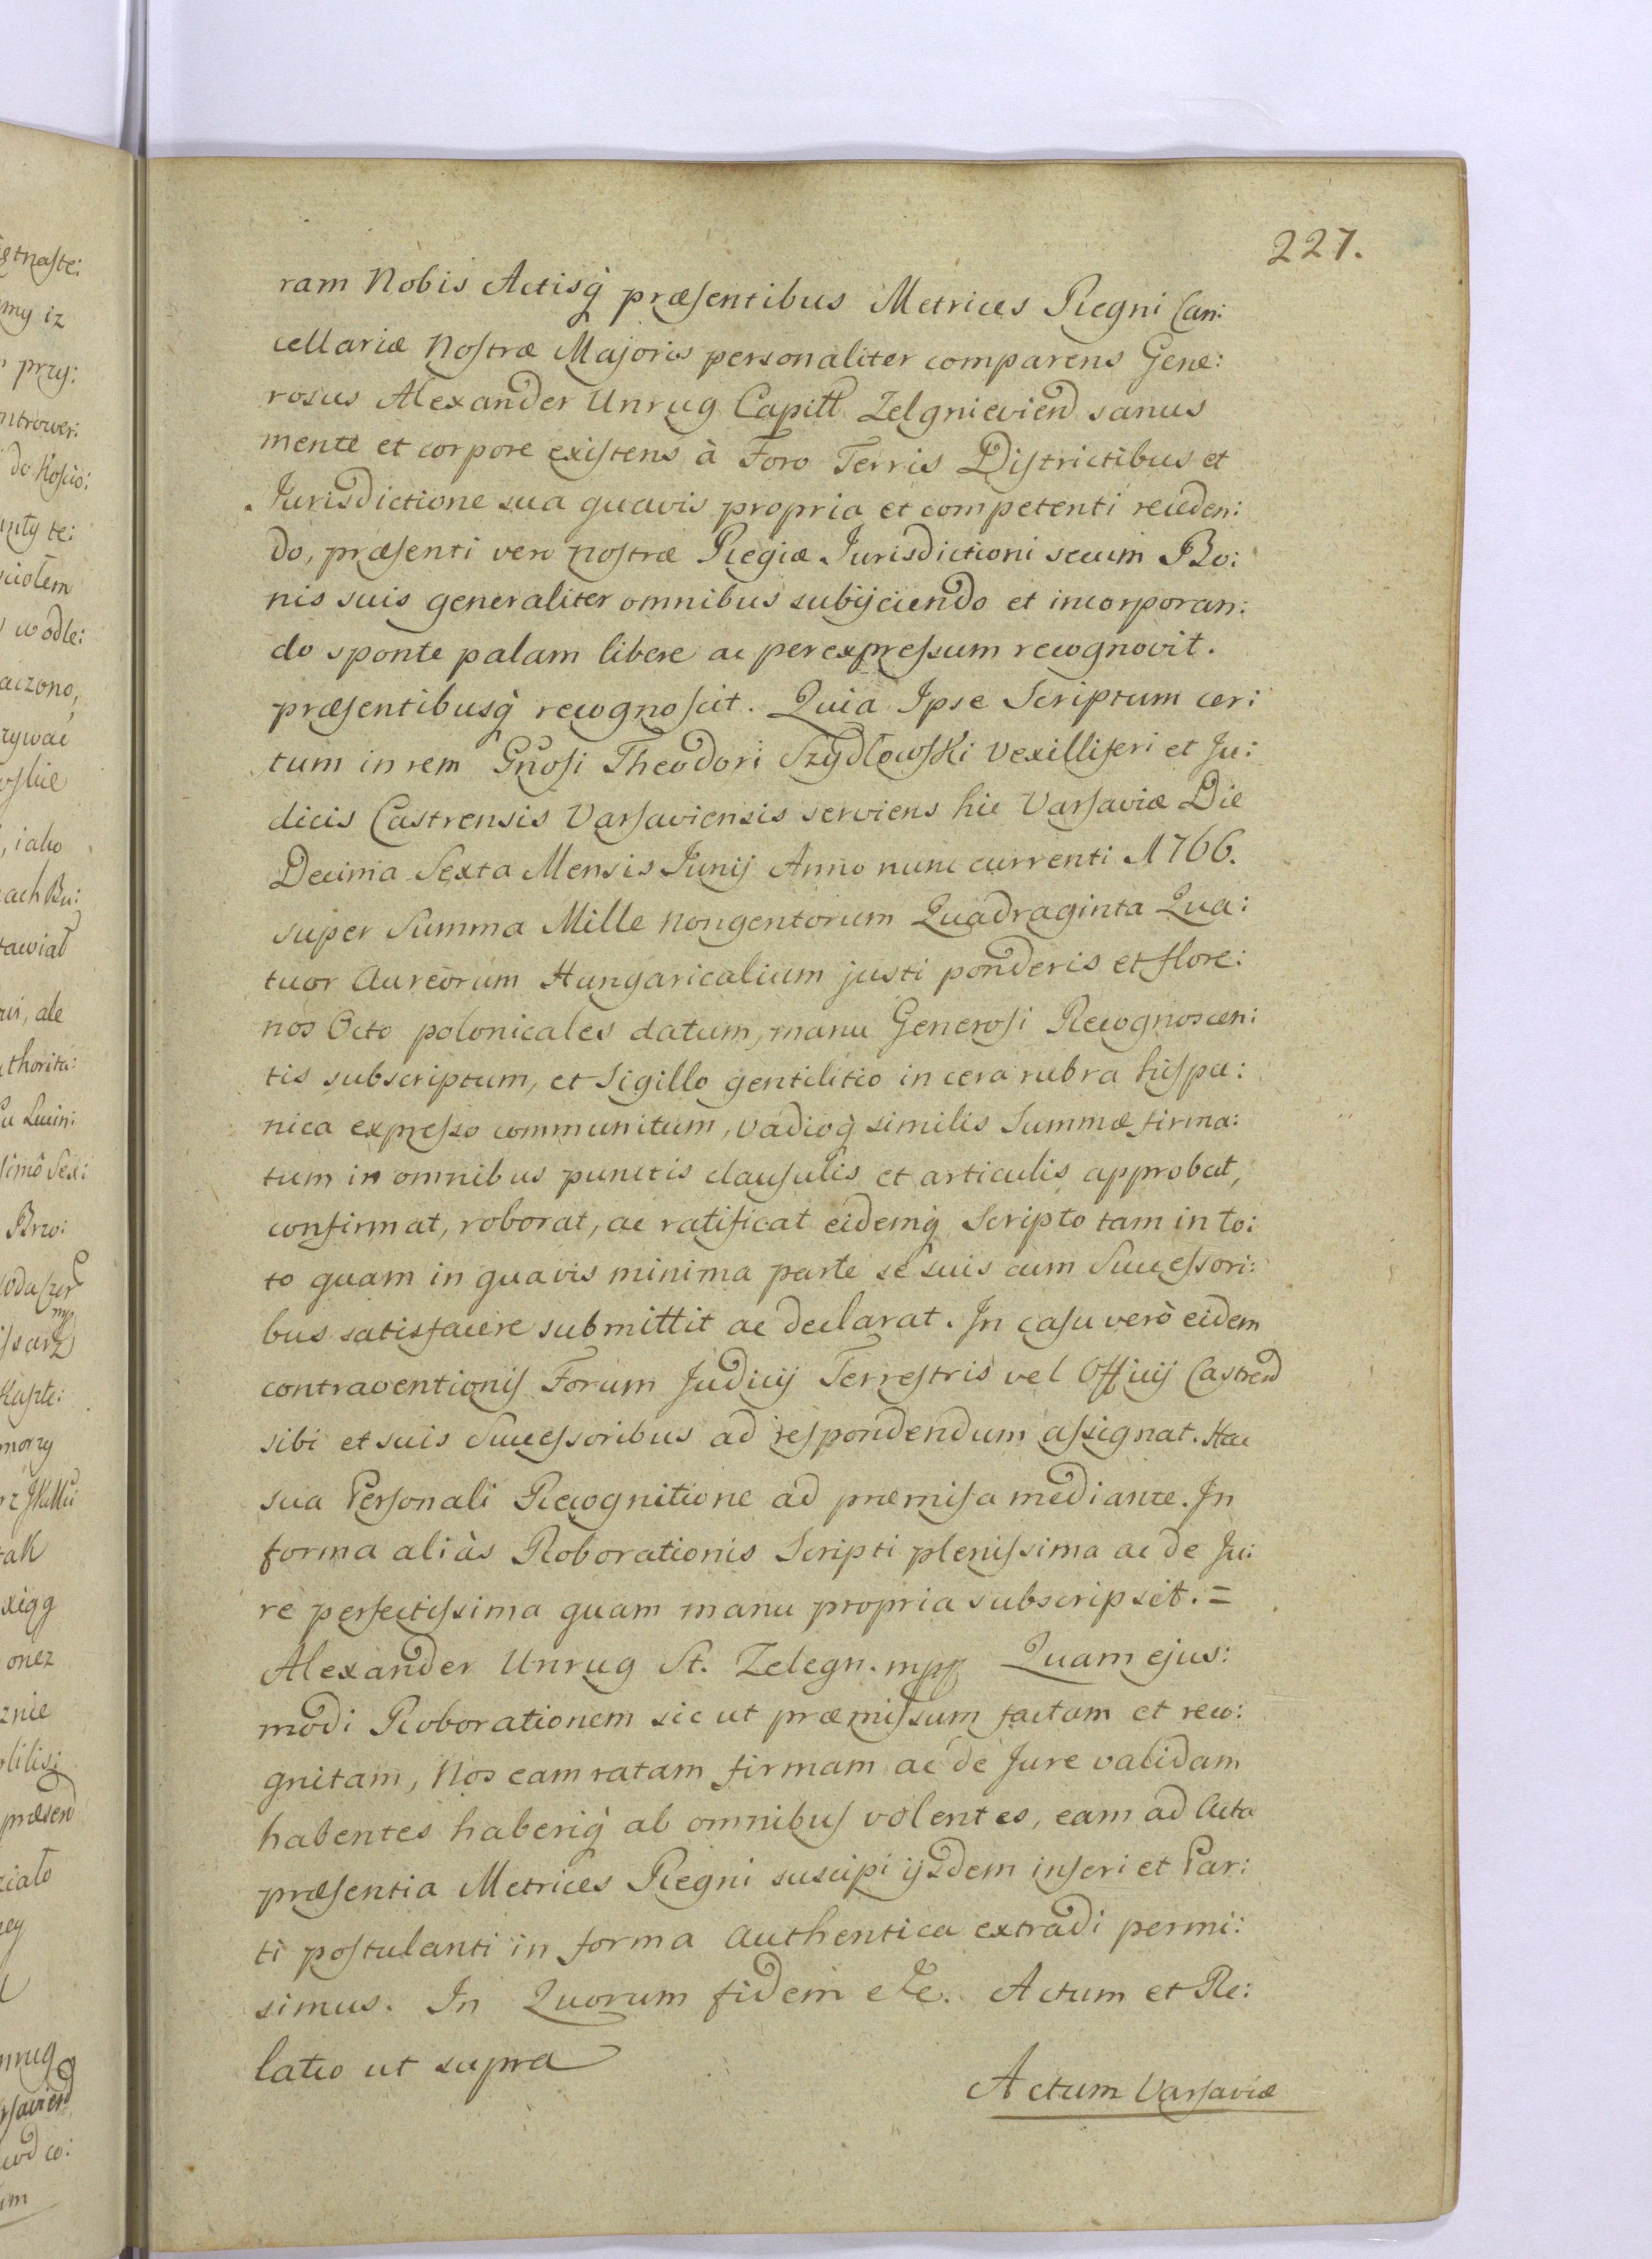 227.
ram Nobis Actisq̀ præsentibus Metrices Regni Can:
cellariæ Nostræ Majoris personaliter comparens Gene:
rosus Alexander Unrug Capitl Zelgnieviend sanus
mente et corpore existens à Foro Terris Districtibus et
Jurisdictione sua quavis propria et competenti receden:
do, præsenti vero nostræ Regiæ Jurisdictioni secum Bo:
nis suis generaliter omnibus subijciendo et incorporan:
do sponte palam libere ac per expressum recognovit.
præsentibusq̀ recognoscit. Quia Ipse Scriptum cer:
tum in rem Gnosi Theodori Szydlowski Vexilliferi et Ju:
dicis Castrensis Varsaviensis serviens hic Varsaviæ Die
Decima Sexta Mensis Junij Anno nunc currenti 1766.
super Summa Mille Nongentorum Quadraginta Qua:
tuor Aureorum Hungaricalium justi ponderis et flore:
nos Octo polonicales datum, manu Generosi Recognoscen:
tis subscriptum, et Sigillo gentilitio in cera rubra hispa:
nica expresso communitum, vadioq̀ similis Summæ firma:
tum in omnibus punctis clausulis et articulis approbat,
confirmat, roborat, ac ratificat eidemq̀ Scripto tam in to:
to quam in quavis minima parte se suis cum Successori:
bus satisfacere submittit ac declarat. In casu verò eidem
contraventionis Forum Judicij Terrestris vel Officij Castrend
sibi et suis Successoribus ad respondendum assignat. Hac
sua Personali Recognitione ad præmisa mediante. In
forma aliàs Roborationis Scripti plenissima ac de Ju:
re perfectissima quam manu propria subscripsit. =
Alexander Unrug St. Zelegn. mpp Quam ejus:
modi Roborationem sic ut præmissum factam et reco:
gnitam, Nos eam ratam firmam ac de Jure validam
habentes haberiq̀ ab omnibus volentes, eam ad Acta
præsentia Metrices Regni suscipi ijsdem inseri et Par:
ti postulanti in forma Authentica extradi permi:
simus. In Quorum fidem etc. Actum et Re:
latio ut supra
Actum Varsaviæ